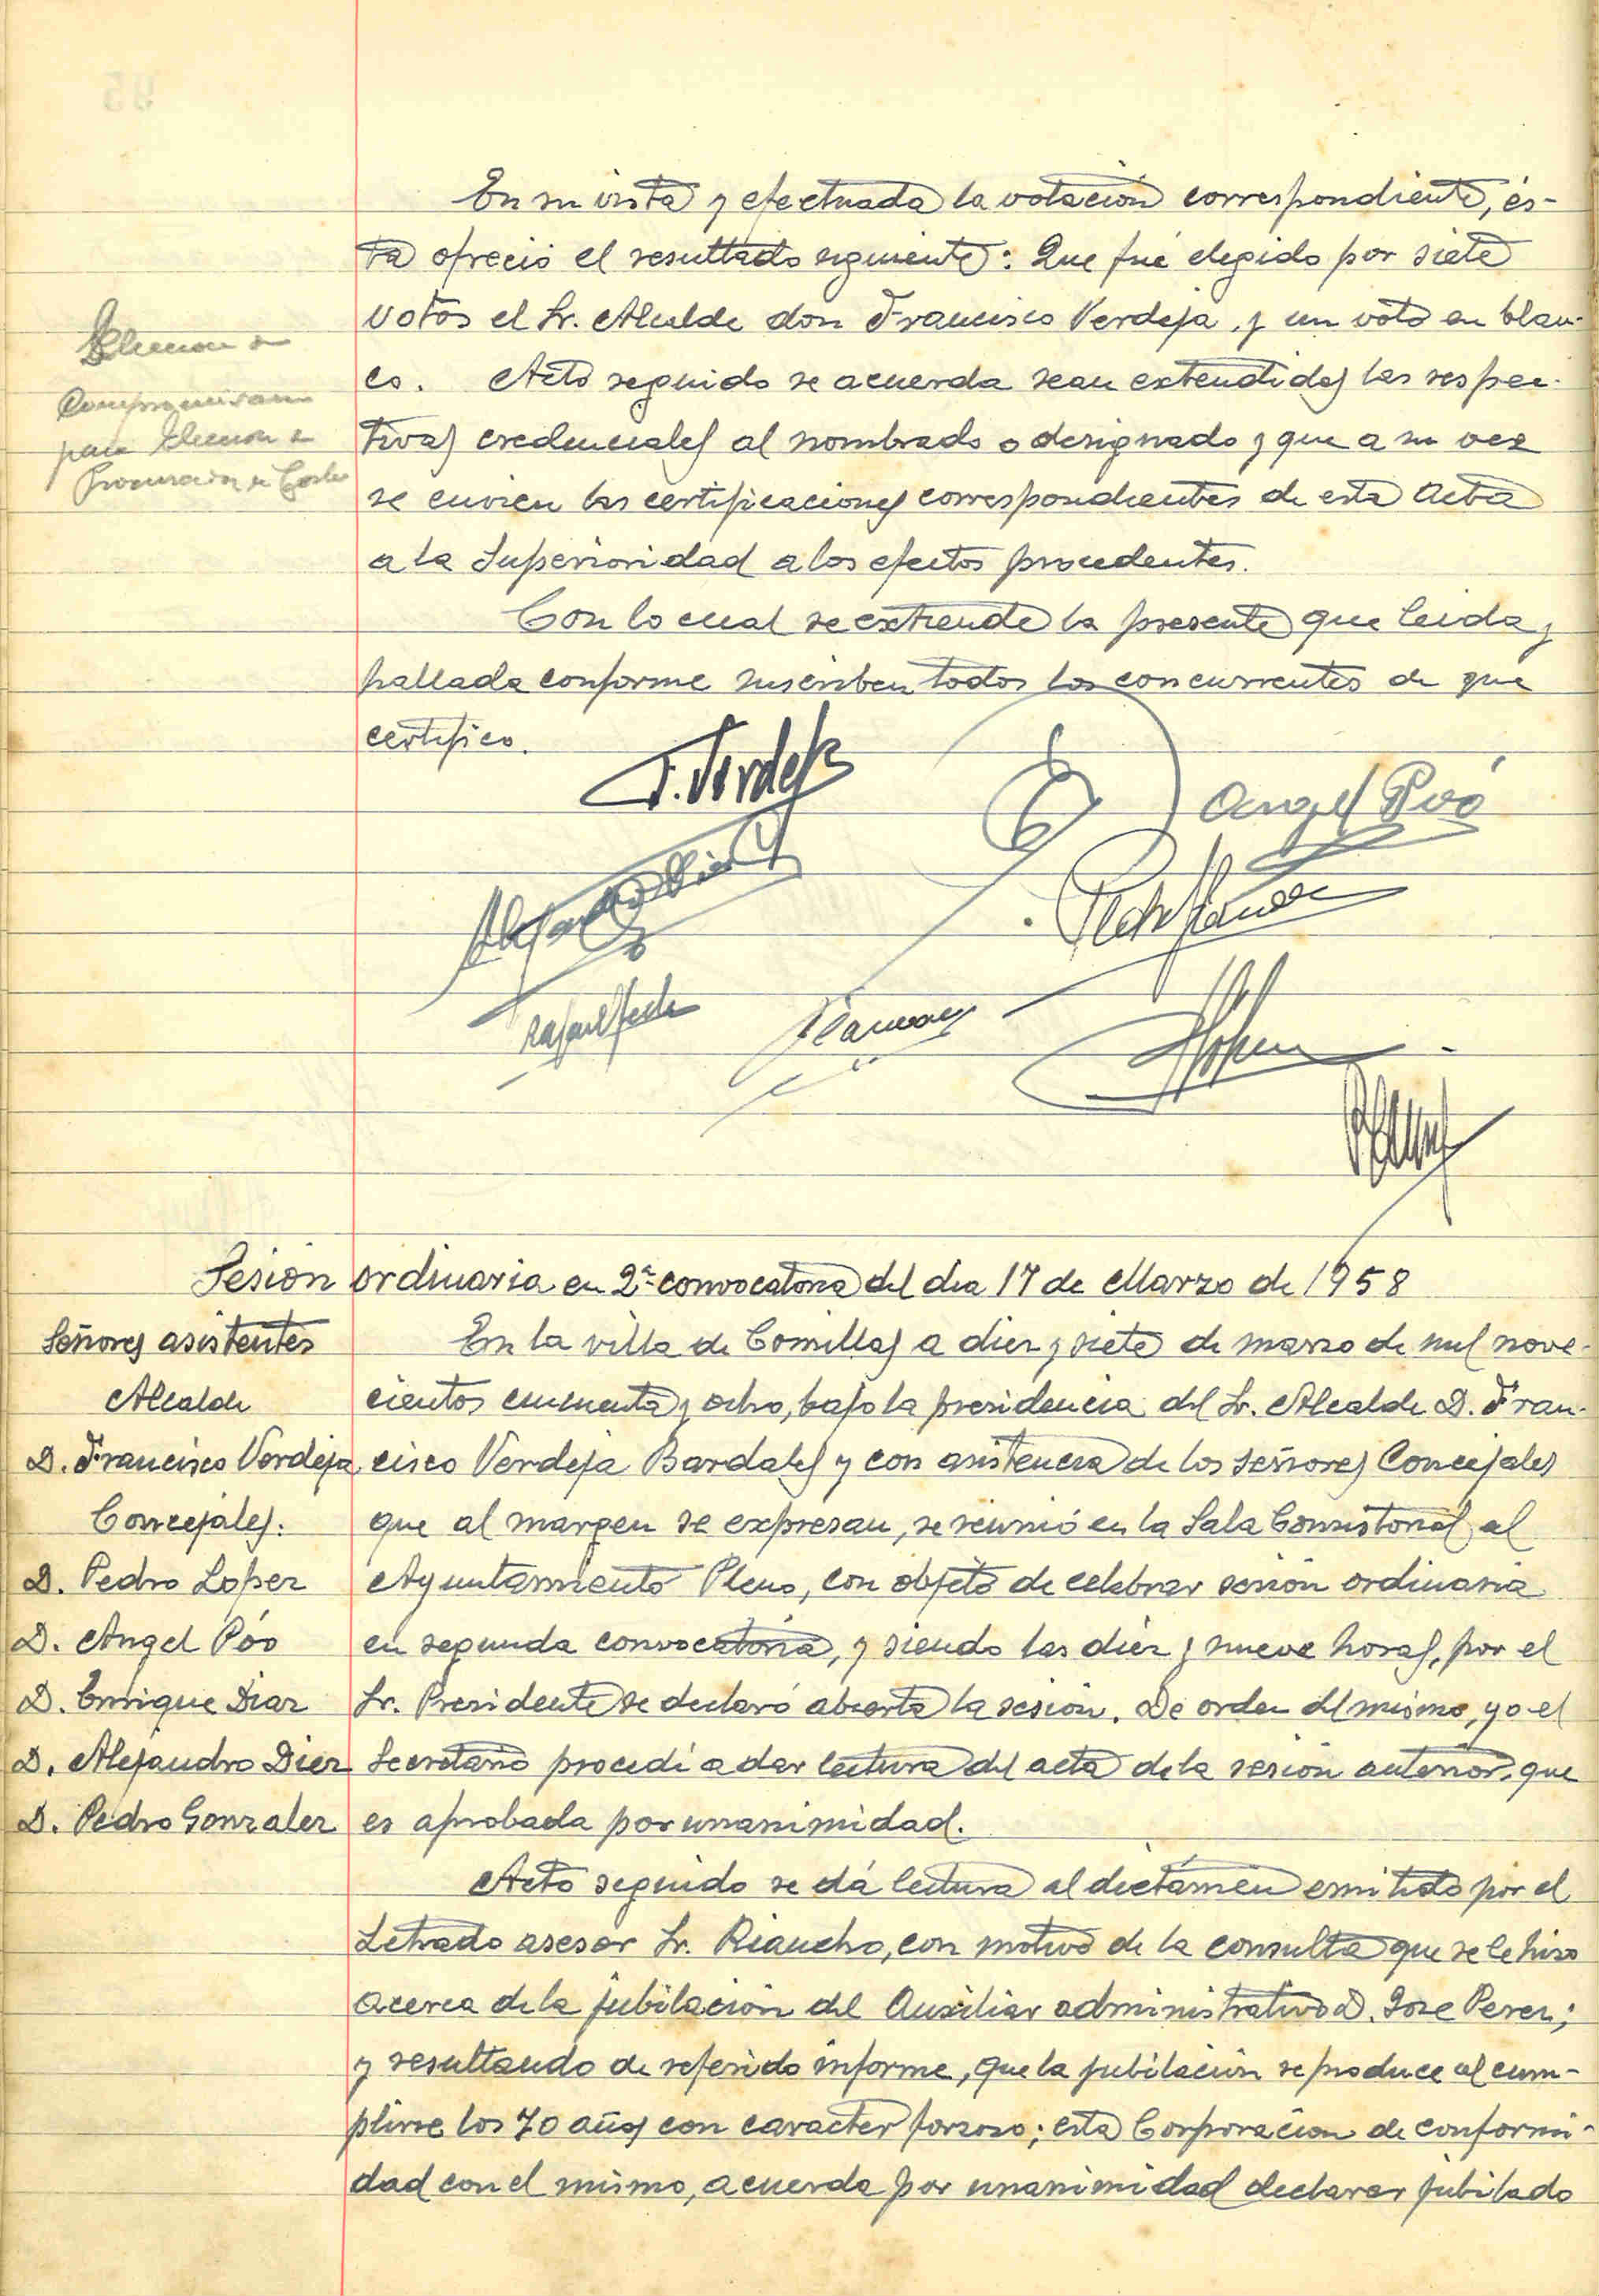 En su vista y efectuada la votación correspondiente, és-
ta ofreció el resultado siguiente: Que fué elegido por siete
votos el Sr. Alcalde don Francisco Verdeja, y un voto en blan-
co. Acto seguido se acuerda sean extendidas las respec-
tivas credenciales al nombrado o designado y que a su vez
se envien las certificaciones correspondientes de esta Acta
a la Superioridad a los efectos procedentes.
Elección de
Compromisario
para Elección de
Procurador en Cortes
Con lo cual se extiende la presente que leida y
hallada conforme suscriben todos los concurrentes de que
certifico.
F. Verdeja
Angel Póo
Alejandro Diez
Sesion ordinaria en 2ª convocatoria del dia 17 de Marzo de 1958
Señores asistentes
Alcalde
D. Francisco Verdeja
Concejales:
D. Pedro Lopez
D. Angel Póo
D. Enrique Diaz
D. Alejandro Diez
D. Pedro Gonzalez
En la villa de Comillas a diez y siete de marzo de mil nove-
cientos cincuenta y ocho, bajo la presidencia del Sr. Alcalde D. Fran-
cisco Verdeja Bardales y con asistencia de los señores Concejales
que al margen se expresan, se reunió en la Sala Consistorial el
Ayuntamiento Pleno, con objeto de celebrar sesión ordinaria
en segunda convocatoria, y siendo las diez y nueve horas, por el
Sr. Presidente se declaró abierta la sesión. De orden del mismo, yo el
Secretario procedí a dar lectura del acta de la sesión anterior, que
es aprobada por unanimidad.
Acto seguido se dá lectura al dictámen emitido por el
Letrado asesor Sr. Riancho, con motivo de la consulta que se le hizo
acerca de la jubilación del Auxiliar administrativo D. Jose Perez;
y resultando de referido informe, que la jubilación se produce al cum-
plirse los 70 años con caracter forzoso; esta Corporación de conformi-
dad con el mismo, acuerda por unanimidad declarar jubilado